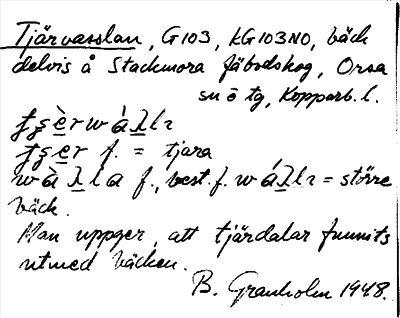 Tjärvasslan, G103, kG103NO, bäck
delvis å Stackmora fäbodskog, Orsa
sn ö tg, Kopparb. l.
f. = tjära
f., best. f. = större
bäck.
Man uppger, att tjärdalar funnits
utmed bäcken.
B. Granholm 1948.